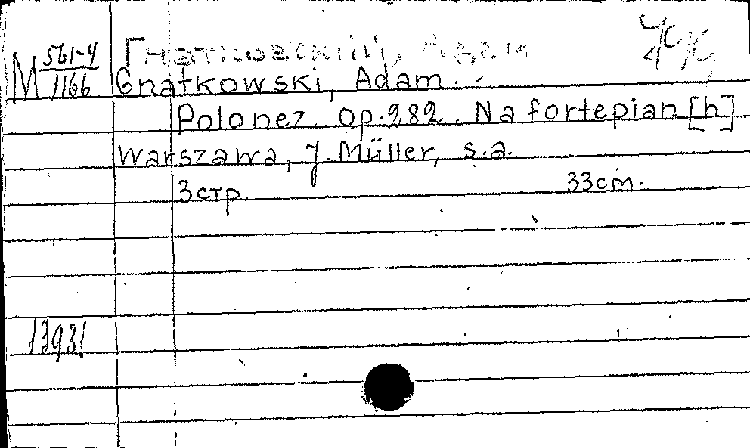 М 561-4/1166
Гнатковский, Адам
Gnatkowski, Adam.
Polonez. op. 282. Na fortepian [h]
Warszawa, J. Müller, s.a.
3 стр. 33 cm.
13931